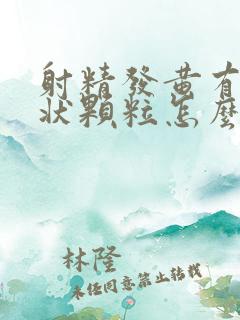 射精發黃有
狀顆粒怎麼
林隆
未任同意禁止转载